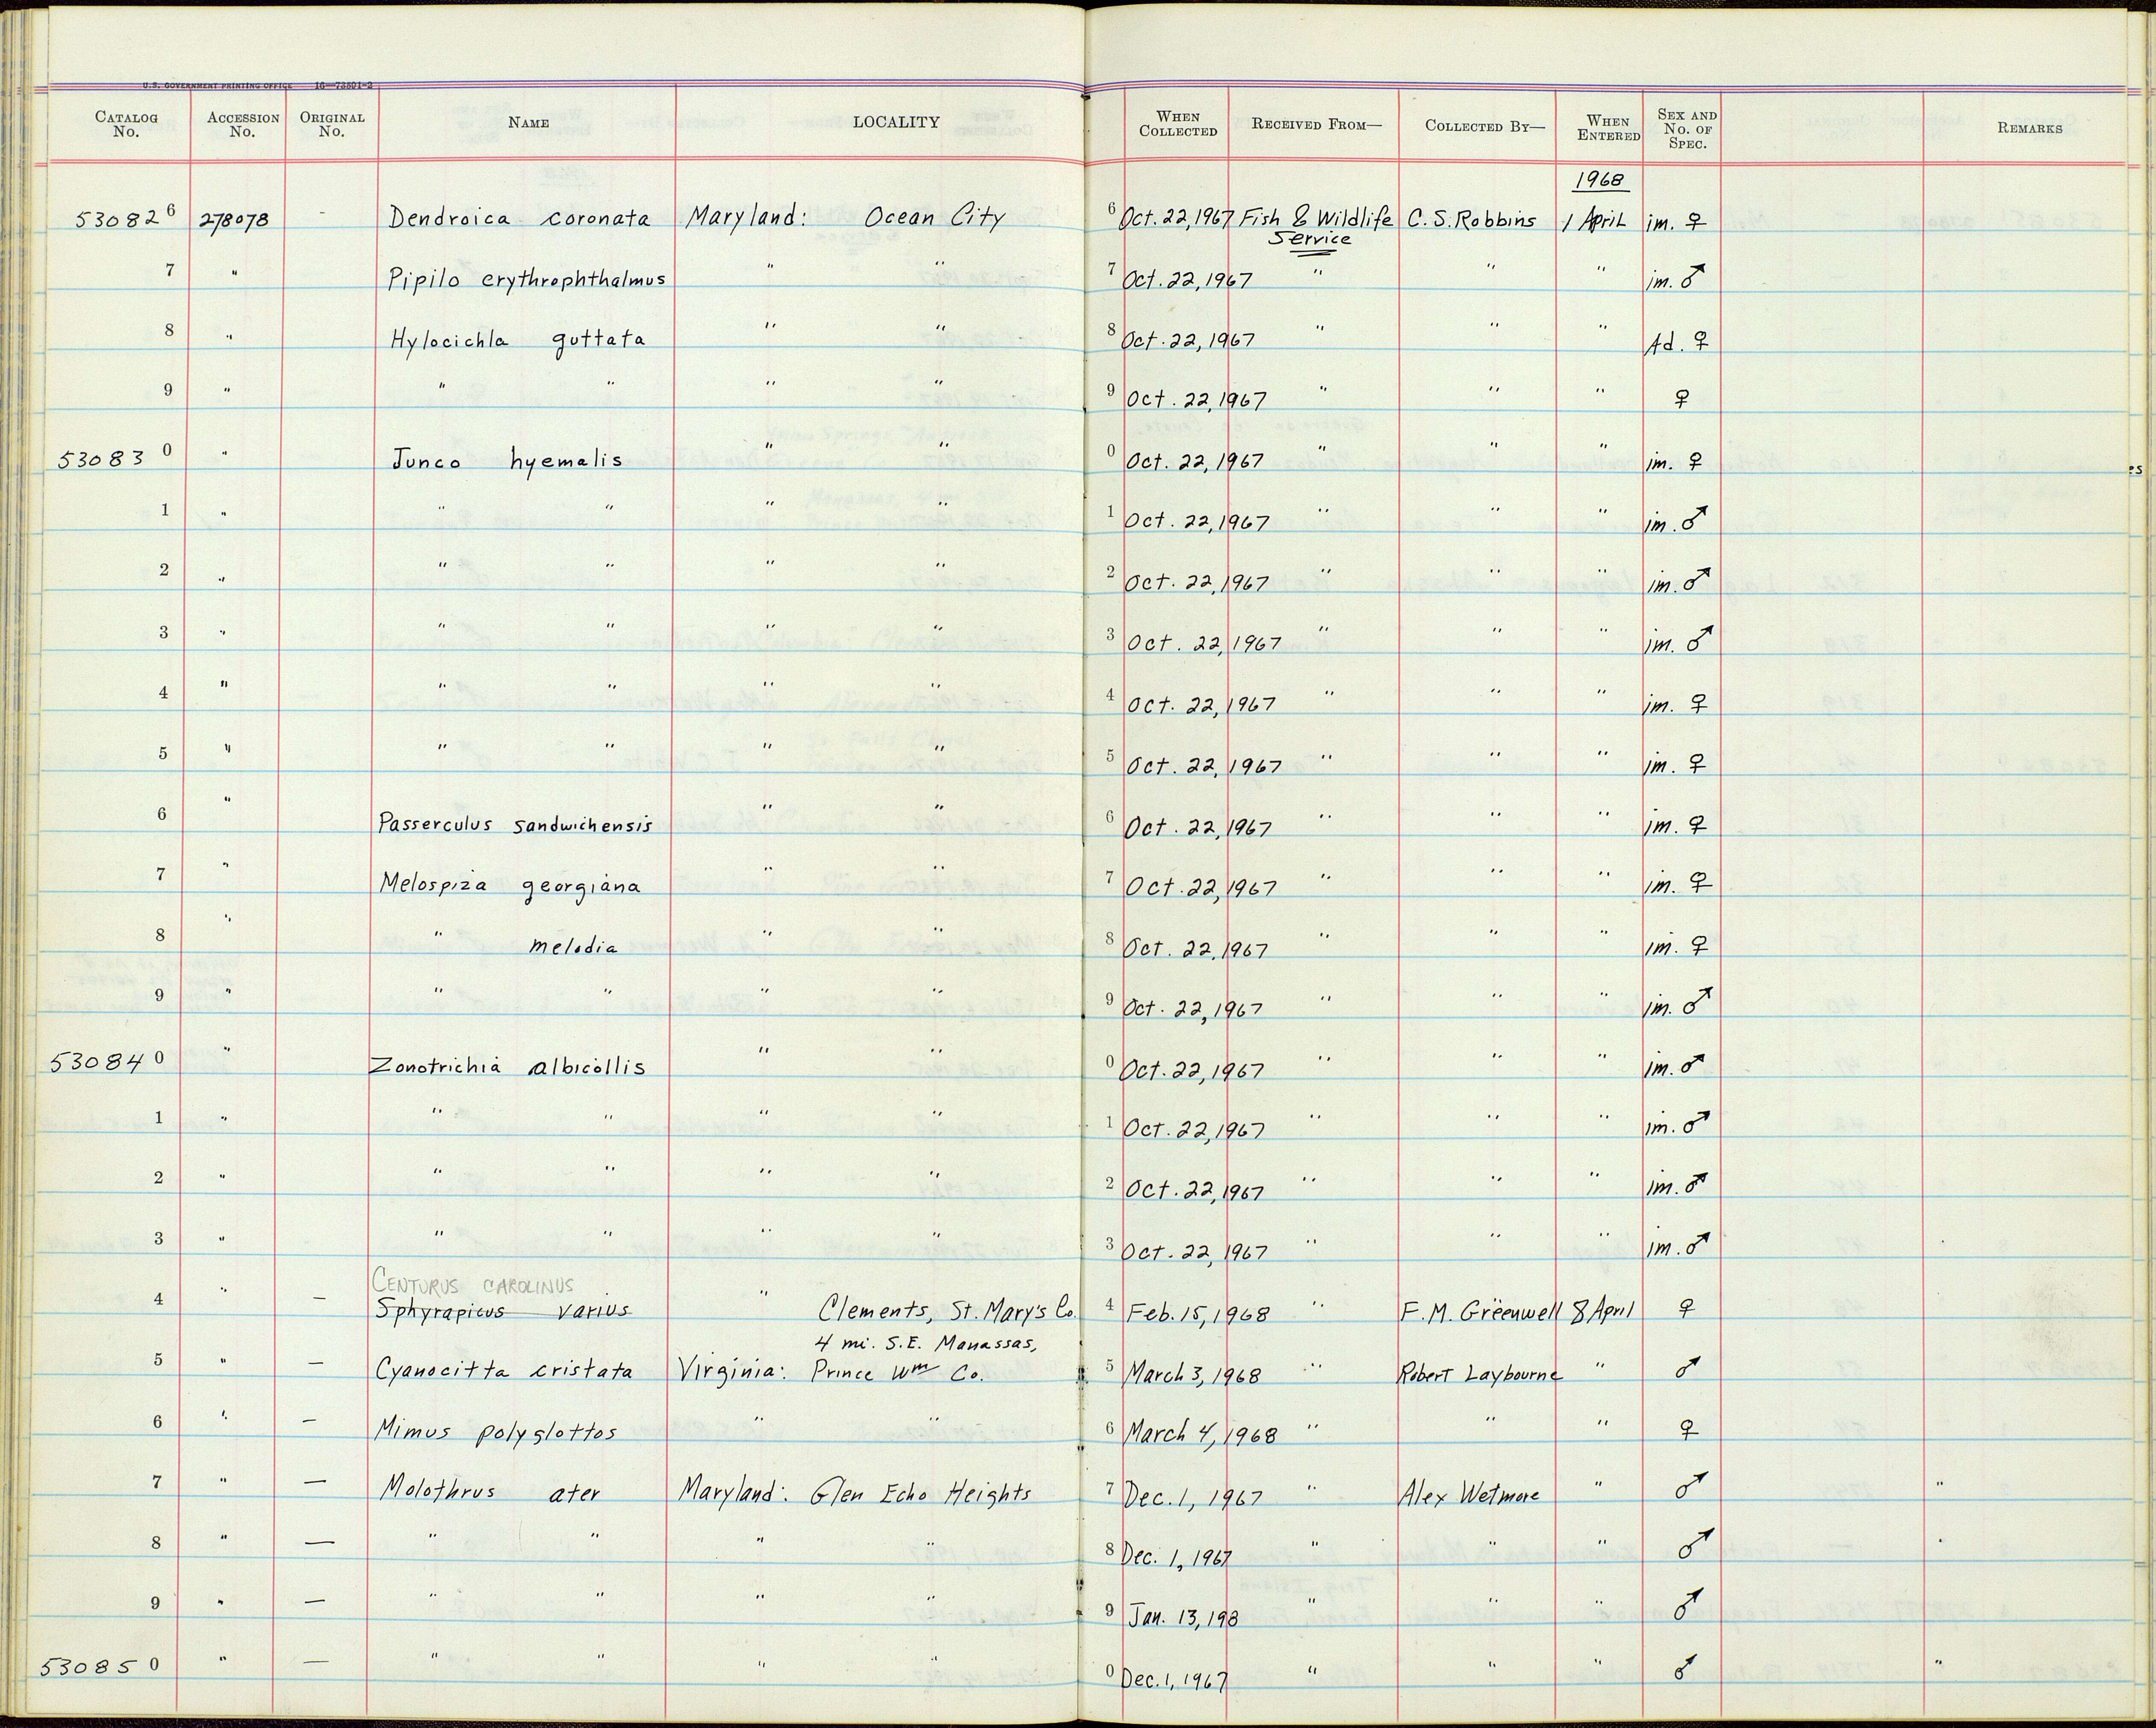 U.S. GOVERNMENT PRINTING OFFICE 16—73801-2
CATALOG No. ACCESSION No. ORIGINAL No. NAME LOCALITY WHEN COLLECTED RECEIVED FROM— COLLECTED BY— WHEN ENTERED SEX AND No. OF SPEC. REMARKS
1968
530826 278078 - Dendroica coronata Maryland: Ocean City 6 Oct. 22, 1967 Fish & Wildlife Service C. S. Robbins 1 April im. ♀
7 " Pipilo erythrophthalmus " " 7 Oct. 22, 1967 " " " im. ♂
8 " Hylocichla guttata " " 8 Oct. 22, 1967 " " " Ad. ♀
9 " " " " " 9 Oct. 22, 1967 " " " ♀
530830 " Junco hyemalis " " 0 Oct. 22, 1967 " " " im. ♀
1 " " " " " 1 Oct. 22, 1967 " " " im. ♂
2 " " " " " 2 Oct. 22, 1967 " " " im. ♂
3 " " " " " 3 Oct. 22, 1967 " " " im. ♂
4 " " " " " 4 Oct. 22, 1967 " " " im. ♀
5 " " " " " 5 Oct. 22, 1967 " " " im. ♀
6 " Passerculus sandwichensis " " 6 Oct. 22, 1967 " " " im. ♀
7 " Melospiza georgiana " " 7 Oct. 22, 1967 " " " im. ♀
8 " " melodia " " 8 Oct. 22, 1967 " " " im. ♀
9 " " " " " 9 Oct. 22, 1967 " " " im. ♂
530840 " Zonotrichia albicollis " " 0 Oct. 22, 1967 " " " im. ♂
1 " " " " " 1 Oct. 22, 1967 " " " im. ♂
2 " " " " " 2 Oct. 22, 1967 " " " im. ♂
3 " " " " " 3 Oct. 22, 1967 " " " im. ♂
CENTURUS CAROLINUS
4 " — Sphyrapicus varius " Clements, St. Mary's Co. 4 Feb. 15, 1968 " F. M. Greenwell 8 April ♀
4 mi. S.E. Manassas,
5 " — Cyanocitta cristata Virginia: Prince Wm Co. 5 March 3, 1968 " Robert Laybourne " ♂
6 " — Mimus polyglottos " " 6 March 4, 1968 " " " ♀
7 " — Molothrus ater Maryland: Glen Echo Heights 7 Dec. 1, 1967 " Alex Wetmore " ♂ "
8 " — " " " " 8 Dec. 1, 1967 " " " ♂
9 " — " " " " 9 Jan. 13, 198 " " " ♂
530850 " — " " " " 0 Dec. 1, 1967 " " " ♂ "